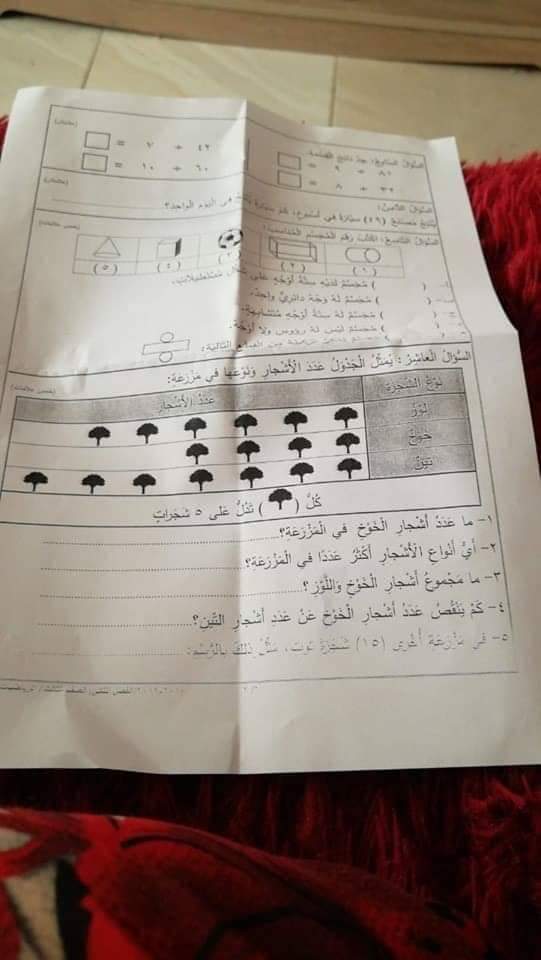 السؤال السابع: جد ناتج القسمة.
٨١ ÷ ٩ =
٤٢ ÷ ٧ =
٣٢ ÷ ٨ =
٦٠ ÷ ١٠ =
السؤال الثامن:
يُنتِجُ مَصنَعٌ (٤٩) سيّارةً في أسبوعٍ، كم سيّارةً يُنتِجُ في اليومِ الواحدِ؟
السؤال التاسع: أكتُبُ رقمَ المُجسَّمِ المُناسِبِ:
(١) (٢) (٣) (٤) (٥)
( ) مُجسَّمٌ لَدَيهِ ستّةُ أوجُهٍ على شكلِ مُستطيلاتٍ.
( ) مُجسَّمٌ لَهُ وَجهٌ دائريٌّ واحدٌ.
( ) مُجسَّمٌ لَهُ ستّةُ أوجُهٍ مُتشابهةٍ.
( ) مُجسَّمٌ ليسَ لَهُ رؤوسٌ ولا أوجُهٌ.
التالية:
السُّؤالُ الْعاشِرُ: يُمَثِّلُ الْجَدْوَلُ عَدَدَ الْأَشْجارِ وَنَوْعَها في مَزْرَعَةٍ:
نَوْعُ الشَّجَرَةِ عَدَدُ الْأَشْجارِ
لَوْزٌ
خَوْخٌ
تينٌ
كُلُّ ( ) تَدُلُّ عَلى ٥ شَجَراتٍ
١- ما عَدَدُ أَشْجارِ الْخَوْخِ في الْمَزْرَعَةِ؟
٢- أَيُّ أَنْواعِ الْأَشْجارِ أَكْثَرُ عَدَدًا في الْمَزْرَعَةِ؟
٣- ما مَجْموعُ أَشْجارِ الْخَوْخِ وَاللَّوْزِ؟
٤- كَمْ يَنْقُصُ عَدَدُ أَشْجارِ الْخَوْخِ عَنْ عَدَدِ أَشْجارِ التّينِ؟
٥- في مَزْرَعَةٍ أُخْرى (١٥) شَجَرَةَ توتٍ، مَثِّلْ ذلِكَ بِالرَّسْمِ: